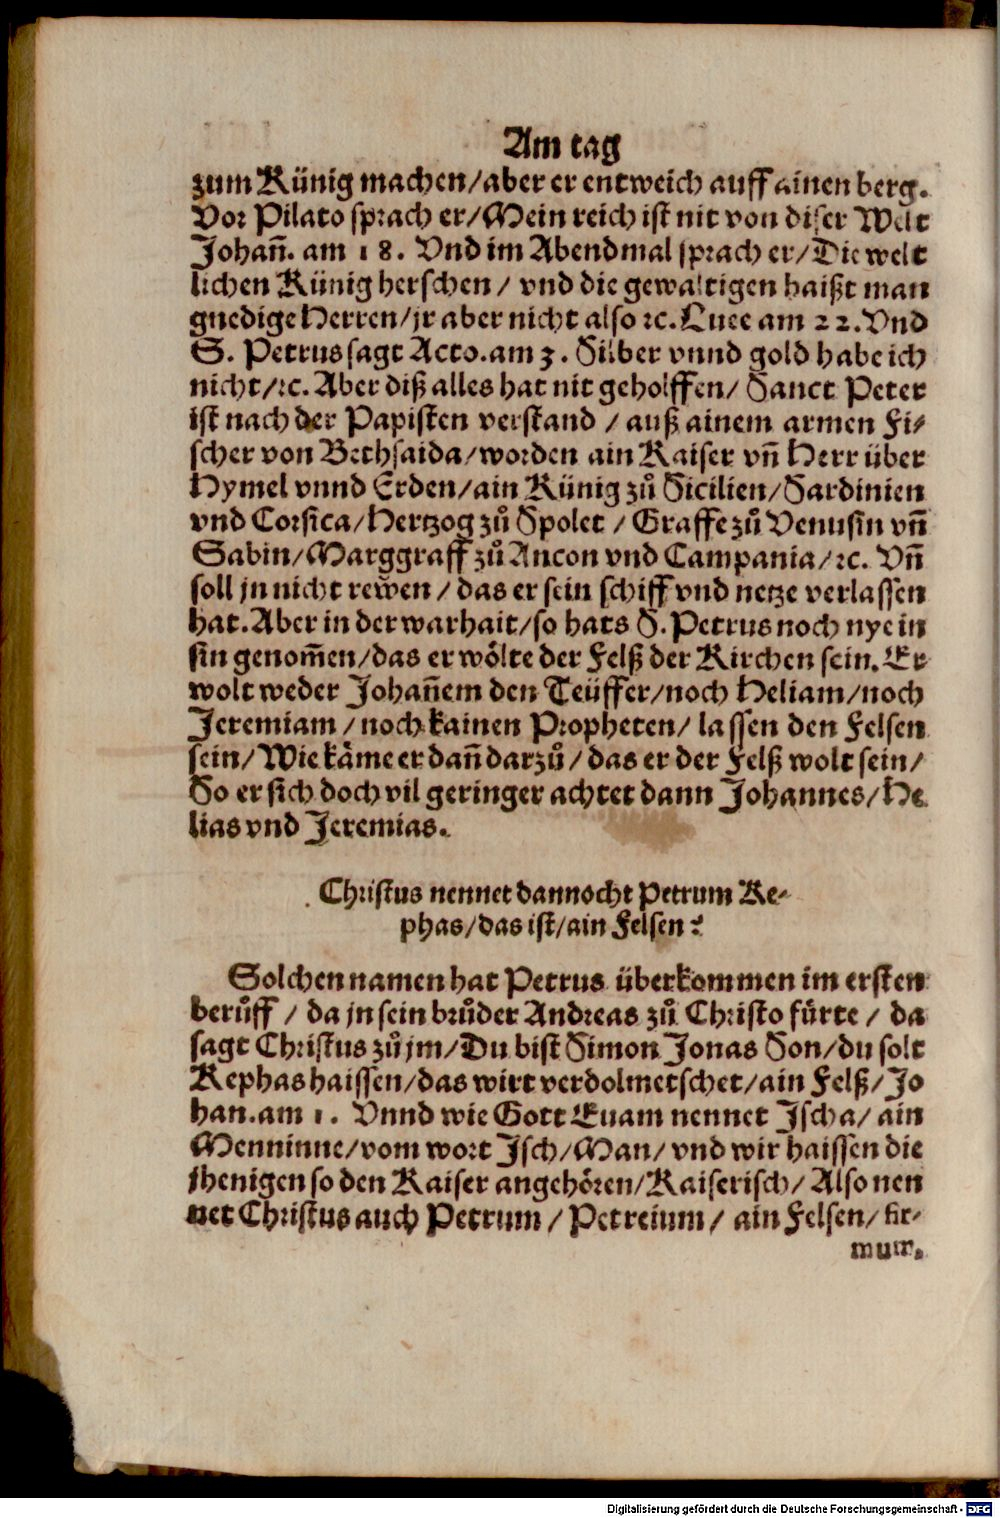 Am tag
zum Künig machen/aber er entweich auff ainen berg.
Vor Pilato sprach er/Mein reich ist nit von diser Welt
Johañ. am 18. Vnd im Abendmal sprach er/Die welt
lichen Künig herschen/ vnd die gewaltigen haißt man
gnedige Herren/jr aber nicht also ꝛc. Luce am 22. Vnd
S. Petrus sagt Acto. am 3. Silber vnnd gold habe ich
nicht/ꝛc. Aber diß alles hat nit geholffen/ Sanct Peter
ist nach der Papisten verstand / auß ainem armen Fi⸗
scher von Bethsaida/worden ain Kaiser vñ Herr über
Hymel vnnd Erden/ain Künig zů Sicilien/Sardinien
vnd Corsica/Hertzog zů Spolet / Graffe zů Venusin vñ
Sabin/Marggraff zů Ancon vnd Campania/ꝛc. Vñ
soll jn nicht rewen / das er sein schiff vnd netze verlassen
hat. Aber in der warhait/so hats S. Petrus noch nye in
sin genom̃en/das er wölte der Felß der Kirchen sein. Er
wolt weder Johañem den Teüffer/noch Heliam/noch
Jeremiam /noch kainen Propheten/ lassen den Felsen
sein/ Wie käme er dañ darzů / das er der Felß wolt sein/
So er sich doch vil geringer achtet dann Johannes/He
lias vnd Jeremias.
Christus nennet dannocht Petrum Ke⸗
phas/das ist/ain Felsen?
Solchen namen hat Petrus überkommen im ersten
berůff / da jn sein brůder Andreas zů Christo fürte / da
sagt Christus zů jm/Du bist Simon Jonas Son/du solt
Kephas haissen/das wirt verdolmetschet/ain Felß/Jo
han. am 1. Vnnd wie Gott Euam nennet Ischa/ ain
Menninne/vom wort Isch/Man/ vnd wir haissen die
jhenigen so den Kaiser angehören/Kaiserisch/ Also nen
net Christus auch Petrum / Petreium/ ain Felsen/ fir⸗
mum.
Digitalisierung gefördert durch die Deutsche Forschungsgemeinschaft - DFG